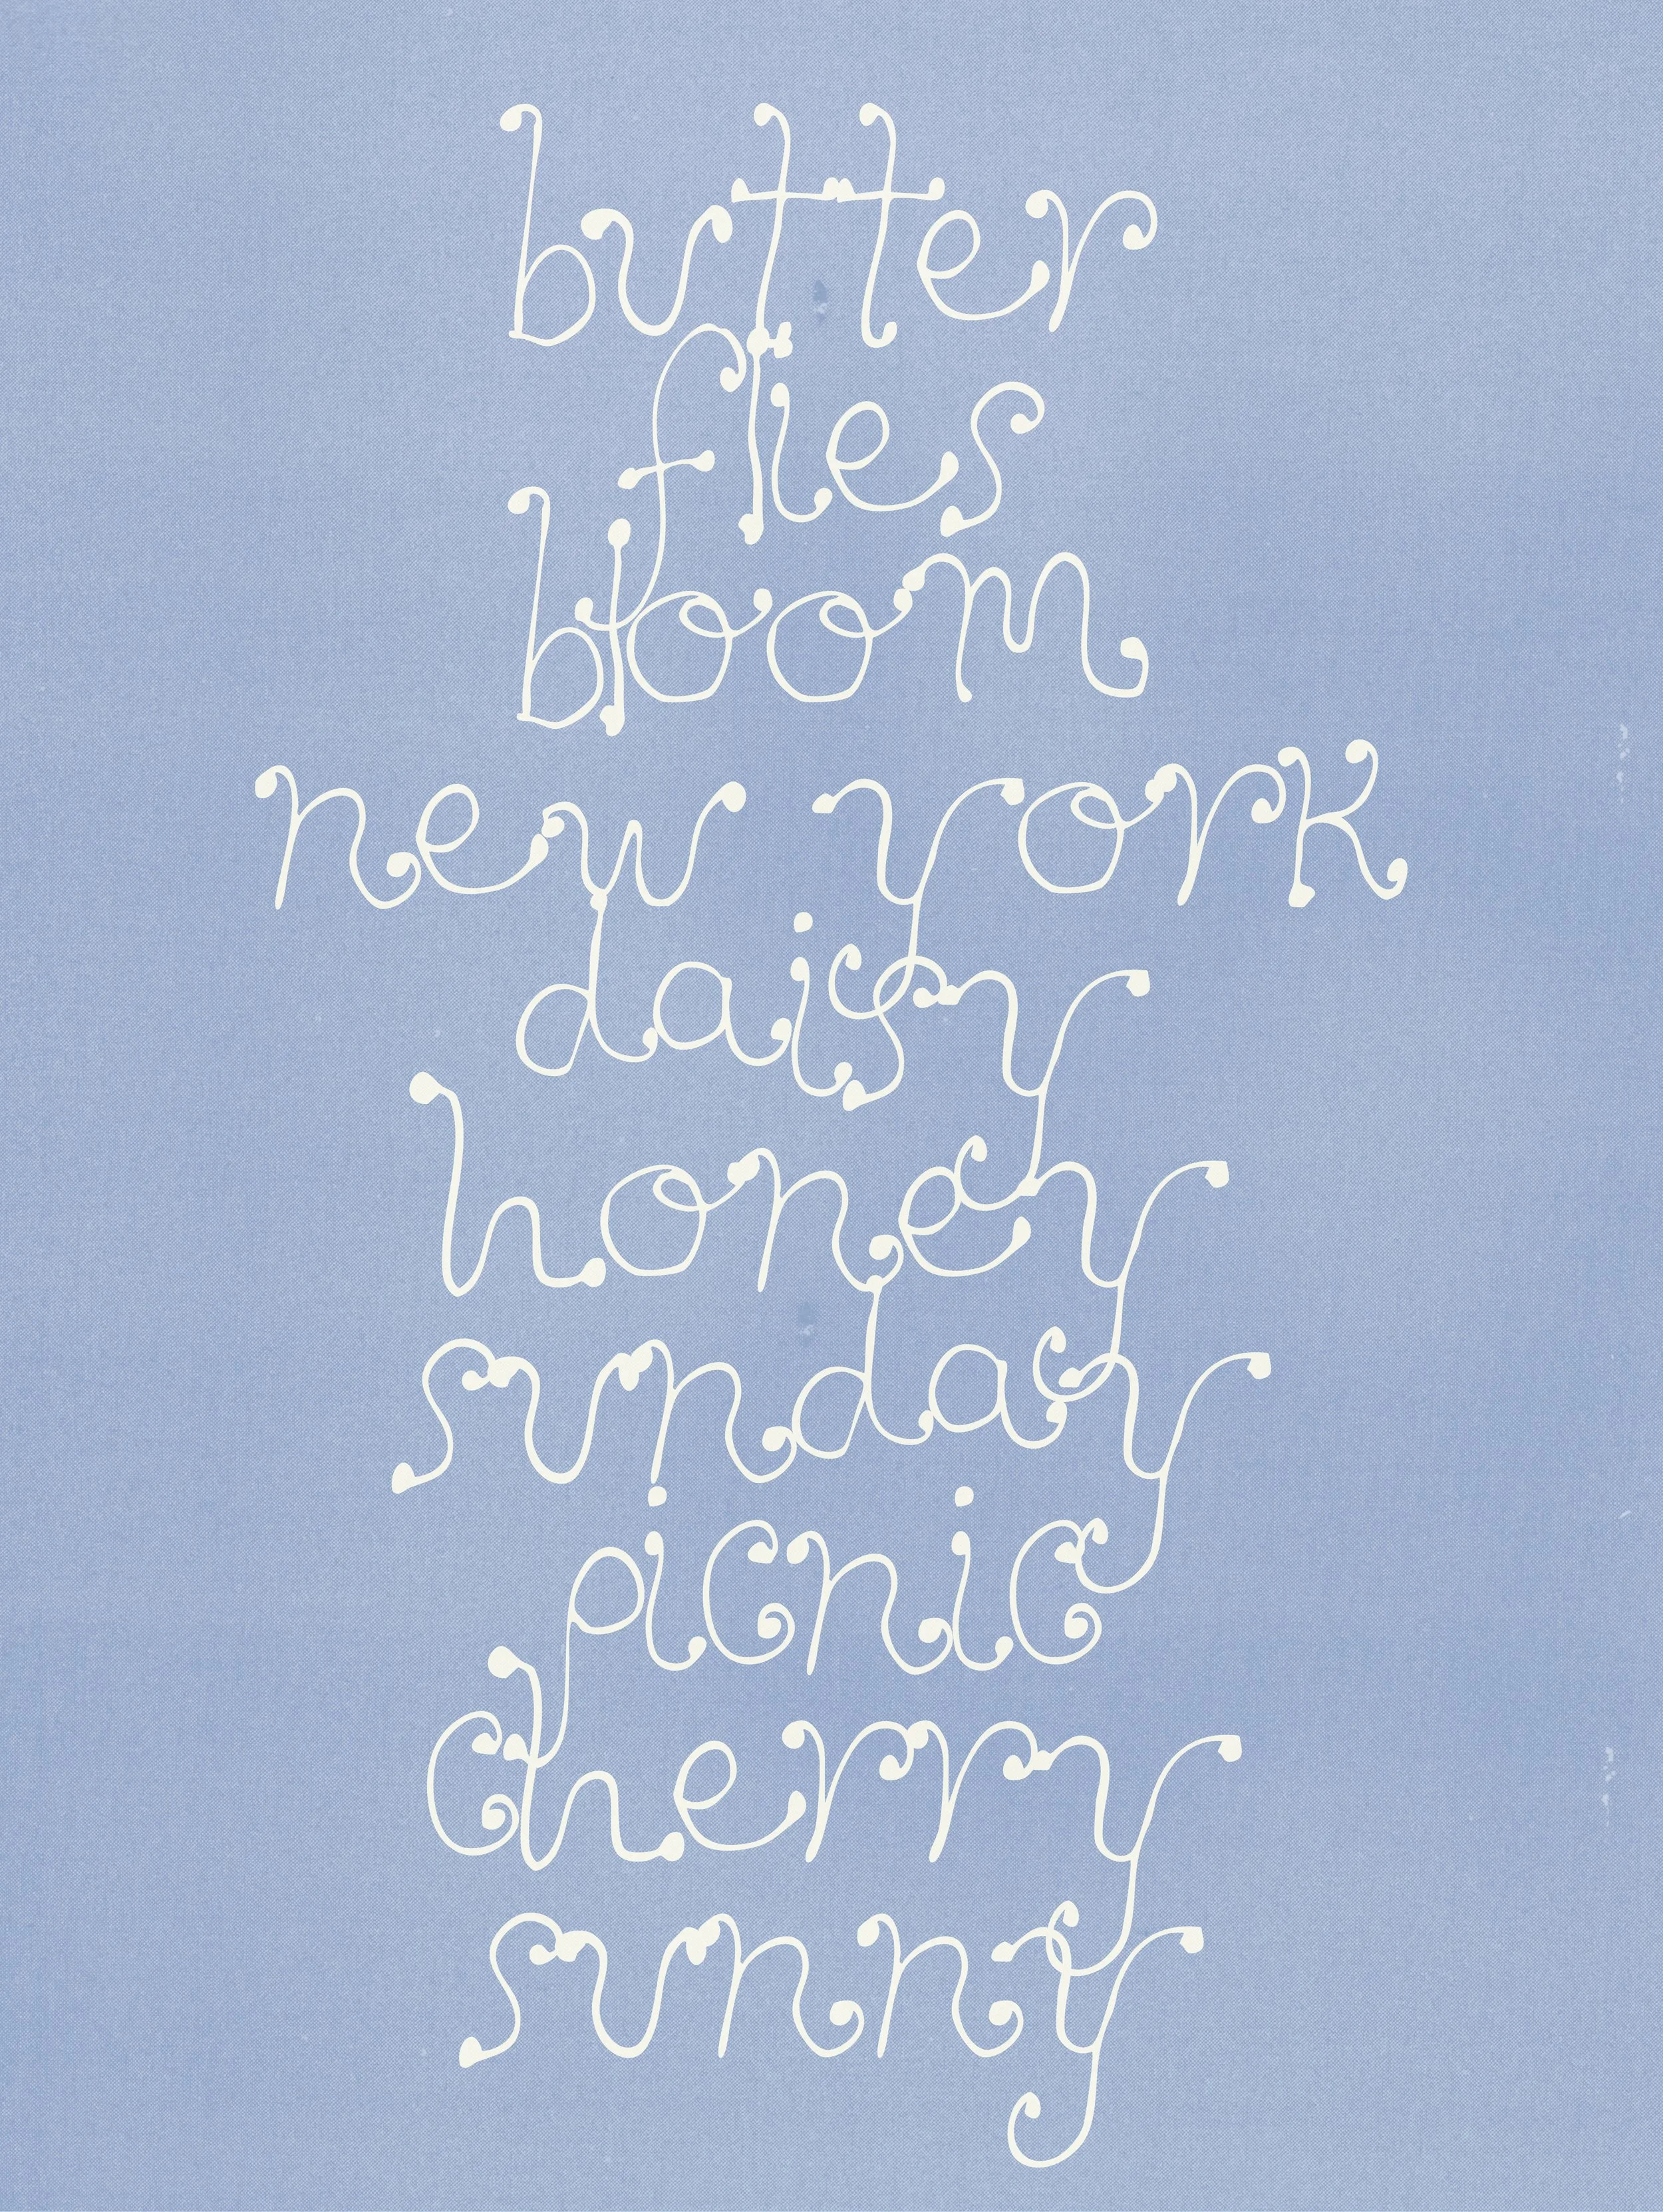 butter
flies
bloom
new york
daisy
honey
sunday
picnic
cherry
sunny